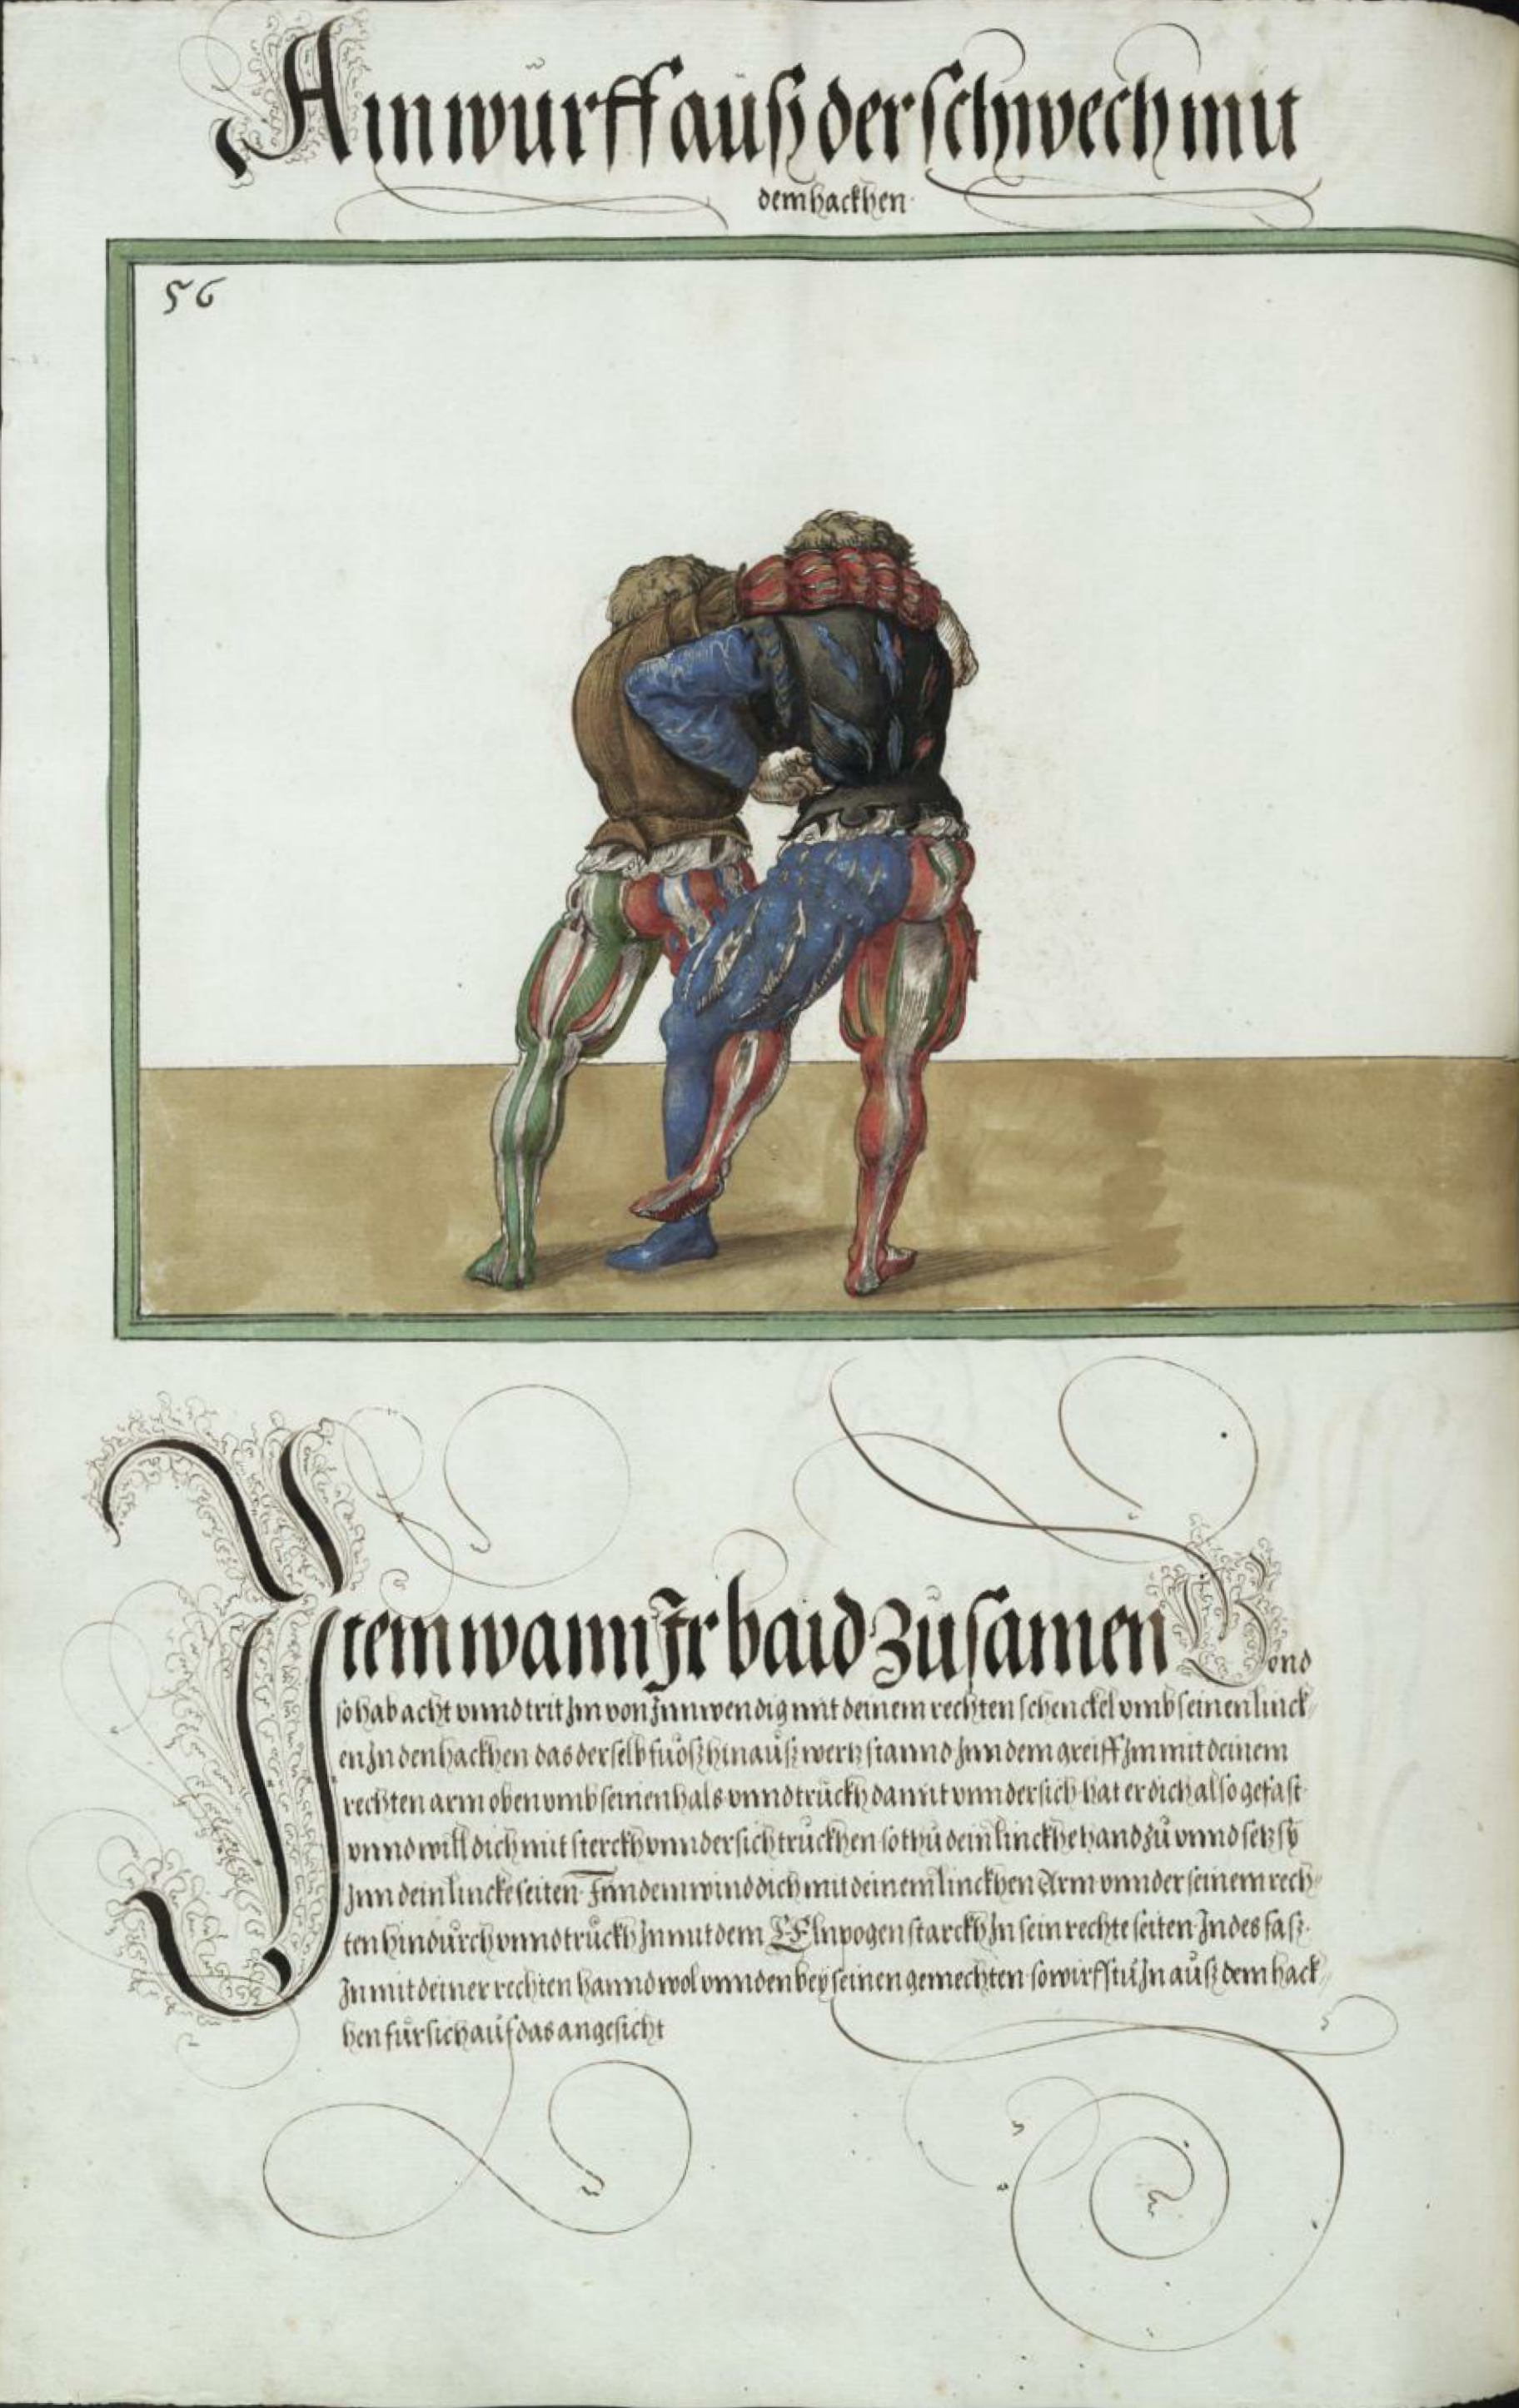 Ain wurff auß der schwech mit
dem hackhen.
56
Item wann Ir baid zusamen Gond
so hab acht vnnd trit Im von Innwendig mit deinem rechten schenckel vmb seinen linck/
en In den hackhen das derselb fuoß hinauß wertz stannd Inn dem greiff Im mit deinem
rechten arm oben vmb seinen hals vnnd truckh damit vnndersich hat er dich also gefast
vnnd will dich mit sterckh vnndersich truckhen so thu dein linckhe hand zu vnnd setz sy
Inn dein lincke seiten Inn dem wind dich mit deinem linckhen Arm vnnder seinem rech/
ten hindurch vnnd truckh In mit dem Elnpogen starckh In sein rechte seiten Indes fasz
In mit deiner rechten hannd wol vnnden bey seinen gemechten so wirffstu In auß dem hack/
hen fürsich auf das angesicht